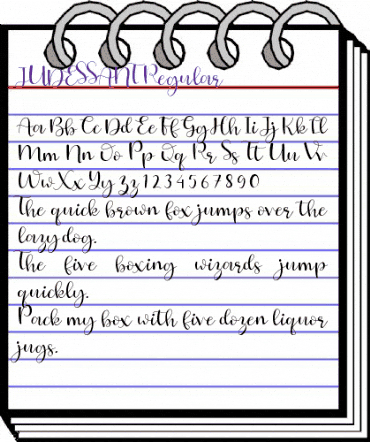 JUDESSANTRegular
Aa Bb Cc Dd Ee Ff Gg Hh Ii Jj Kk Ll
Mm Nn Oo Pp Qq Rr Ss Tt Uu Vv
Ww Xx Yy Zz 1 2 3 4 5 6 7 8 9 0
The quick brown fox jumps over the
lazy dog.
The five boxing wizards jump
quickly.
Pack my box with five dozen liquor
jugs.